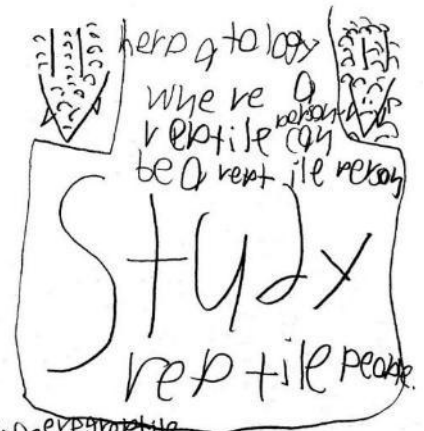 herpatology
where a
person
reptile can
be a reptile person
Study
reptile people.